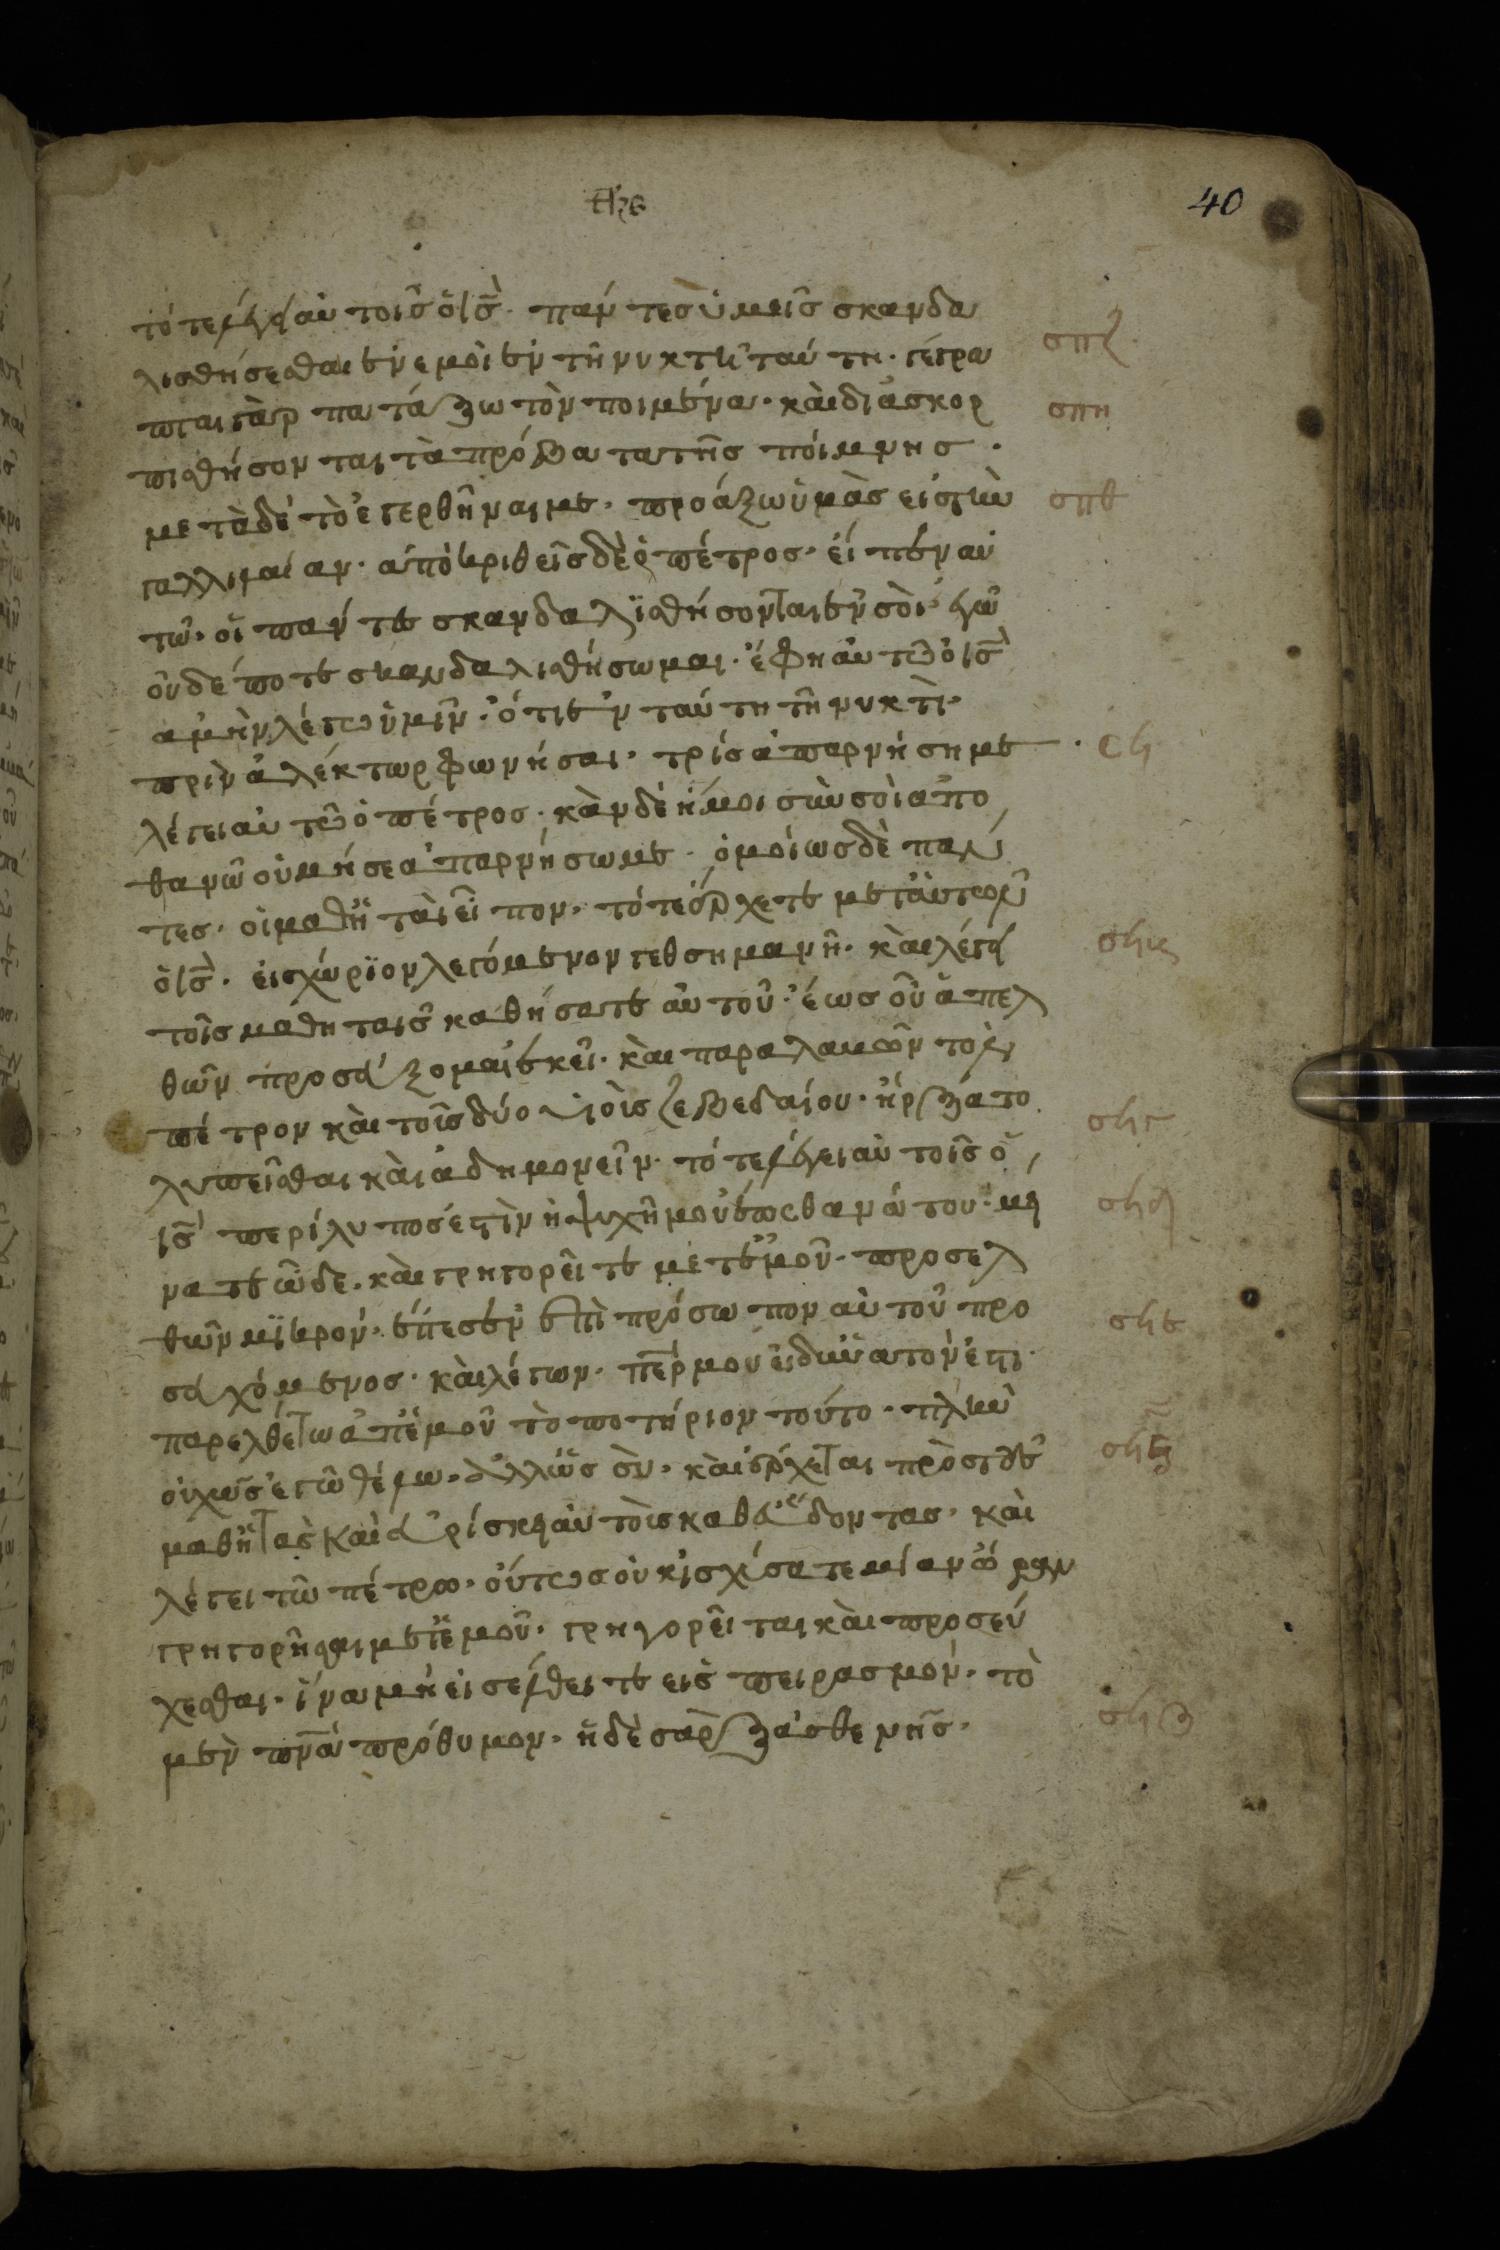 40
τότε λέγει αὐτοῖς ὁ ις̅. πάντες ὑμεῖς σκανδα
λισθήσεσθαι ἐν ἐμοὶ ἐν τῆ νυκτὶ ταύτη. γέγρα
πται γὰρ πατάξω τὸν ποιμένα. καὶ διασκορ
πισθήσονται τὰ πρόβατα τῆς ποίμνης.
μετὰ δὲ τὸ ἐγερθῆναι με. προάξω ὑμὰς εἰς τὴν
γαλλιλαίαν. ἀποκριθεὶς δὲ ὁ πέτρος. εἶπεν αὐ
τῶ. οἱ πάντε σκανδαλϊσθήσονται ἐν σὸι ἐγὼ
οὐδέποτε σκανδαλισθήσωμαι. ἔφη αὐτῶ ὁ ις̅
αμὴν λέγω ὑμῖν. ὅτι ἐν ταύτη τῆ νυκτὶ.
πρὶν ἀλέκτωρ φωνήσαι. τρίς ἀπαρνήση με
λέγει αὐτῶ ὁ πέτρος. κὰν δέη μοι σὺν σὸι ἀπο
θανῶ οὐ μή σε ἀπαρνήσωμε. ὁμοίως δὲ πάν
τες. οἱ μαθηταὶ εἶπον. τότε ἔρχετε μετ αὐτῶν
ὁ ις̅. εἰς χώρϊον λεγόμενον γεθσημανῆ. καὶ λέγει
τοῖς μαθηταις καθήσατε αὐτοῦ. ἕως οὗ ἀπελ
θῶν προσεύξομαι ἐκεῖ. καὶ παραλαβῶν τὸν
πέτρον καὶ τοῖς δύο υἱοὶς ζεβεδαίου. ἤρξατο
λυπεῖσθαι καὶ ἀδημονεῖν. τότε λέγει αὐτοῖς ὁ
ις̅ περίλυπος ἐστὶν ἡ ψυχὴ μου ἕως θανάτου. μεί
νατε ὧδε. καὶ γρηγορεῖτε μετ ἐμοῦ. προσελ
θῶν μϊκρον. ἔπεσεν ἐπὶ πρόσωπον αὐτοῦ προ
σευχόμενος. καὶ λέγων. περ μου εἰ δυνατὸν ἐστι.
παρελθέτω ἀπ ἐμοῦ τὸ ποτήριον τούτο. πλὴν
οὐχ ὡς ἐγὼ θέλω. ἀλλ ὡς σὺ. καὶ ἔρχεται πρὸς τοὺς
μαθητὰς καὶ εὑρίσκει αὐτοὶς καθεύδοντας. καὶ
λέγει τῶ πέτρω. οὕτως οὐκ ἰσχύσατε μίαν ὥραν
γρηγορῆσαι μετ ἐμοῦ. γρηγορεῖται καὶ προσεύ
χεσθαι. ἵνα μὴ εἰσέλθειτε εἰς πειρασμόν. τὸ
μὲν πνα̅ πρόθυμον. ἡ δὲ σὰρξ ἀσθενῆς.
σπζ
σπη
σπθ
σηγ
σηδ
σηε